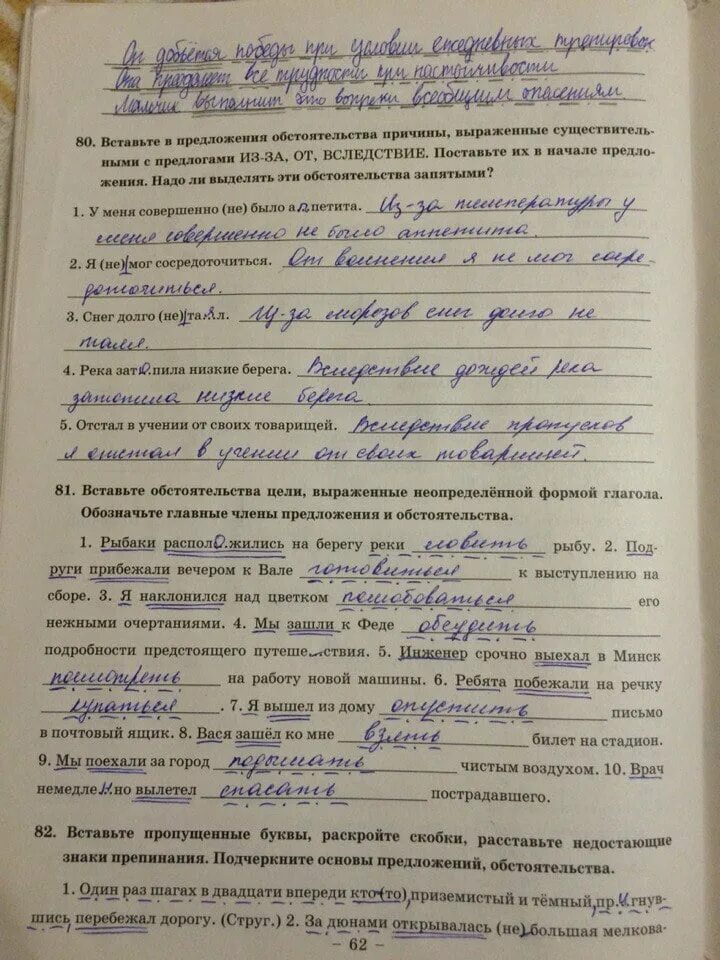 Он добьётся победы при условии ежедневных тренировок
Она преодолеет все трудности при настойчивости
Мальчик выполнит это вопреки всеобщим опасениям.
80. Вставьте в предложения обстоятельства причины, выраженные существитель-
ными с предлогами ИЗ-ЗА, ОТ, ВСЛЕДСТВИЕ. Поставьте их в начале предло-
жения. Надо ли выделять эти обстоятельства запятыми?
1. У меня совершенно (не) было аппетита. Из-за температуры у
меня совершенно не было аппетита.
2. Я (не)|мог сосредоточиться. От волнения я не мог сосре-
доточиться.
3. Снег долго (не)|таял. Из-за морозов снег долго не
таял.
4. Река затопила низкие берега. Вследствие дождей река
затопила низкие берега.
5. Отстал в учении от своих товарищей. Вследствие пропусков
я отстал в учении от своих товарищей.
81. Вставьте обстоятельства цели, выраженные неопределённой формой глагола.
Обозначьте главные члены предложения и обстоятельства.
1. Рыбаки располо.жились на берегу реки ловить рыбу. 2. Под-
руги прибежали вечером к Вале готовиться к выступлению на
сборе. 3. Я наклонился над цветком полюбоваться его
нежными очертаниями. 4. Мы зашли к Феде обсудить
подробности предстоящего путеше..ствия. 5. Инженер срочно выехал в Минск
посмотреть на работу новой машины. 6. Ребята побежали на речку
купаться. 7. Я вышел из дому опустить письмо
в почтовый ящик. 8. Вася зашёл ко мне взять билет на стадион.
9. Мы поехали за город подышать чистым воздухом. 10. Врач
немедленно вылетел спасать пострадавшего.
82. Вставьте пропущенные буквы, раскройте скобки, расставьте недостающие
знаки препинания. Подчеркните основы предложений, обстоятельства.
1. Один раз шагах в двадцати впереди кто-(то), приземистый и тёмный, пр.игнув-
шись, перебежал дорогу. (Струг.) 2. За дюнами открывалась (не) большая мелкова-
– 62 –